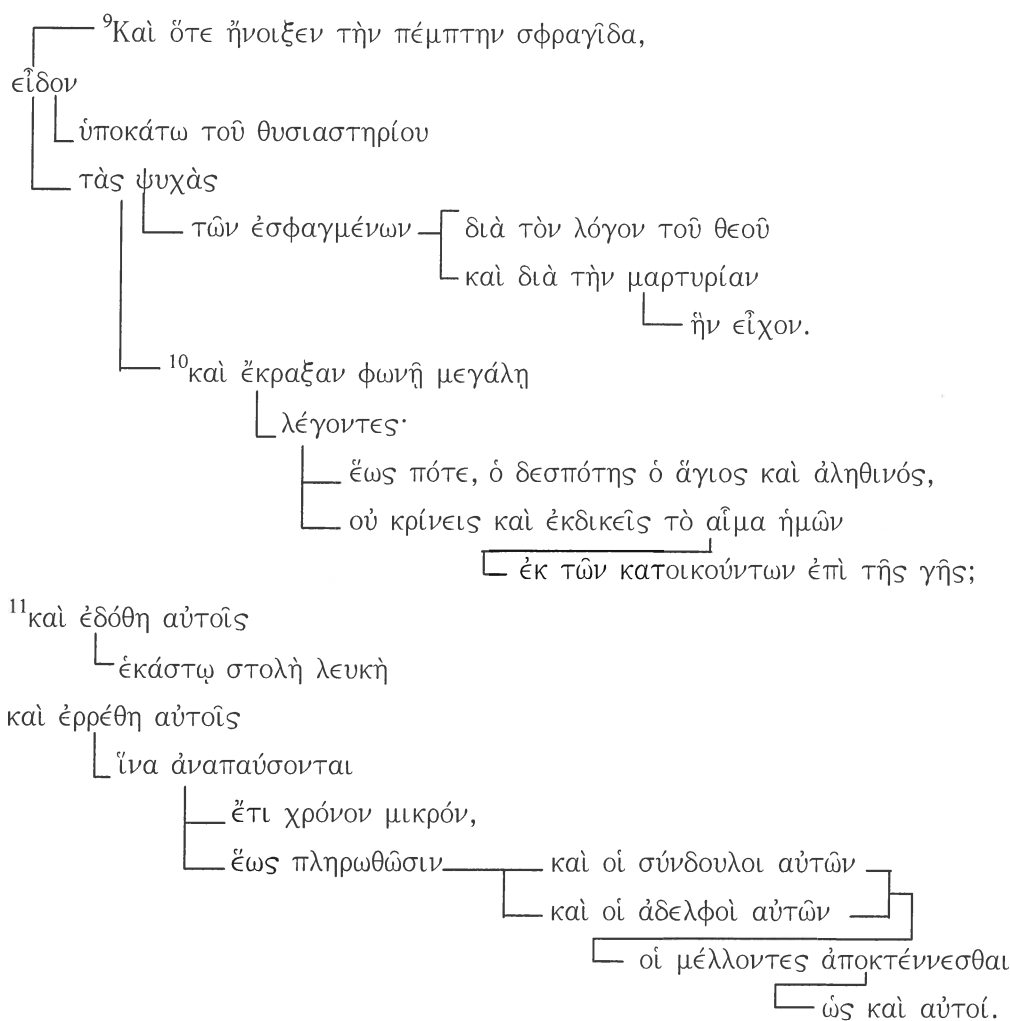 ⁹Καὶ ὅτε ἤνοιξεν τὴν πέμπτην σφραγῖδα,
εἶδον
ὑποκάτω τοῦ θυσιαστηρίου
τὰς ψυχὰς
τῶν ἐσφαγμένων διὰ τὸν λόγον τοῦ θεοῦ
καὶ διὰ τὴν μαρτυρίαν
ἣν εἶχον.
¹⁰καὶ ἔκραξαν φωνῇ μεγάλῃ
λέγοντες·
ἕως πότε, ὁ δεσπότης ὁ ἅγιος καὶ ἀληθινός,
οὐ κρίνεις καὶ ἐκδικεῖς τὸ αἷμα ἡμῶν
ἐκ τῶν κατοικούντων ἐπὶ τῆς γῆς;
¹¹καὶ ἐδόθη αὐτοῖς
ἑκάστῳ στολὴ λευκὴ
καὶ ἐρρέθη αὐτοῖς
ἵνα ἀναπαύσονται
ἔτι χρόνον μικρόν,
ἕως πληρωθῶσιν καὶ οἱ σύνδουλοι αὐτῶν
καὶ οἱ ἀδελφοὶ αὐτῶν
οἱ μέλλοντες ἀποκτέννεσθαι
ὡς καὶ αὐτοί.